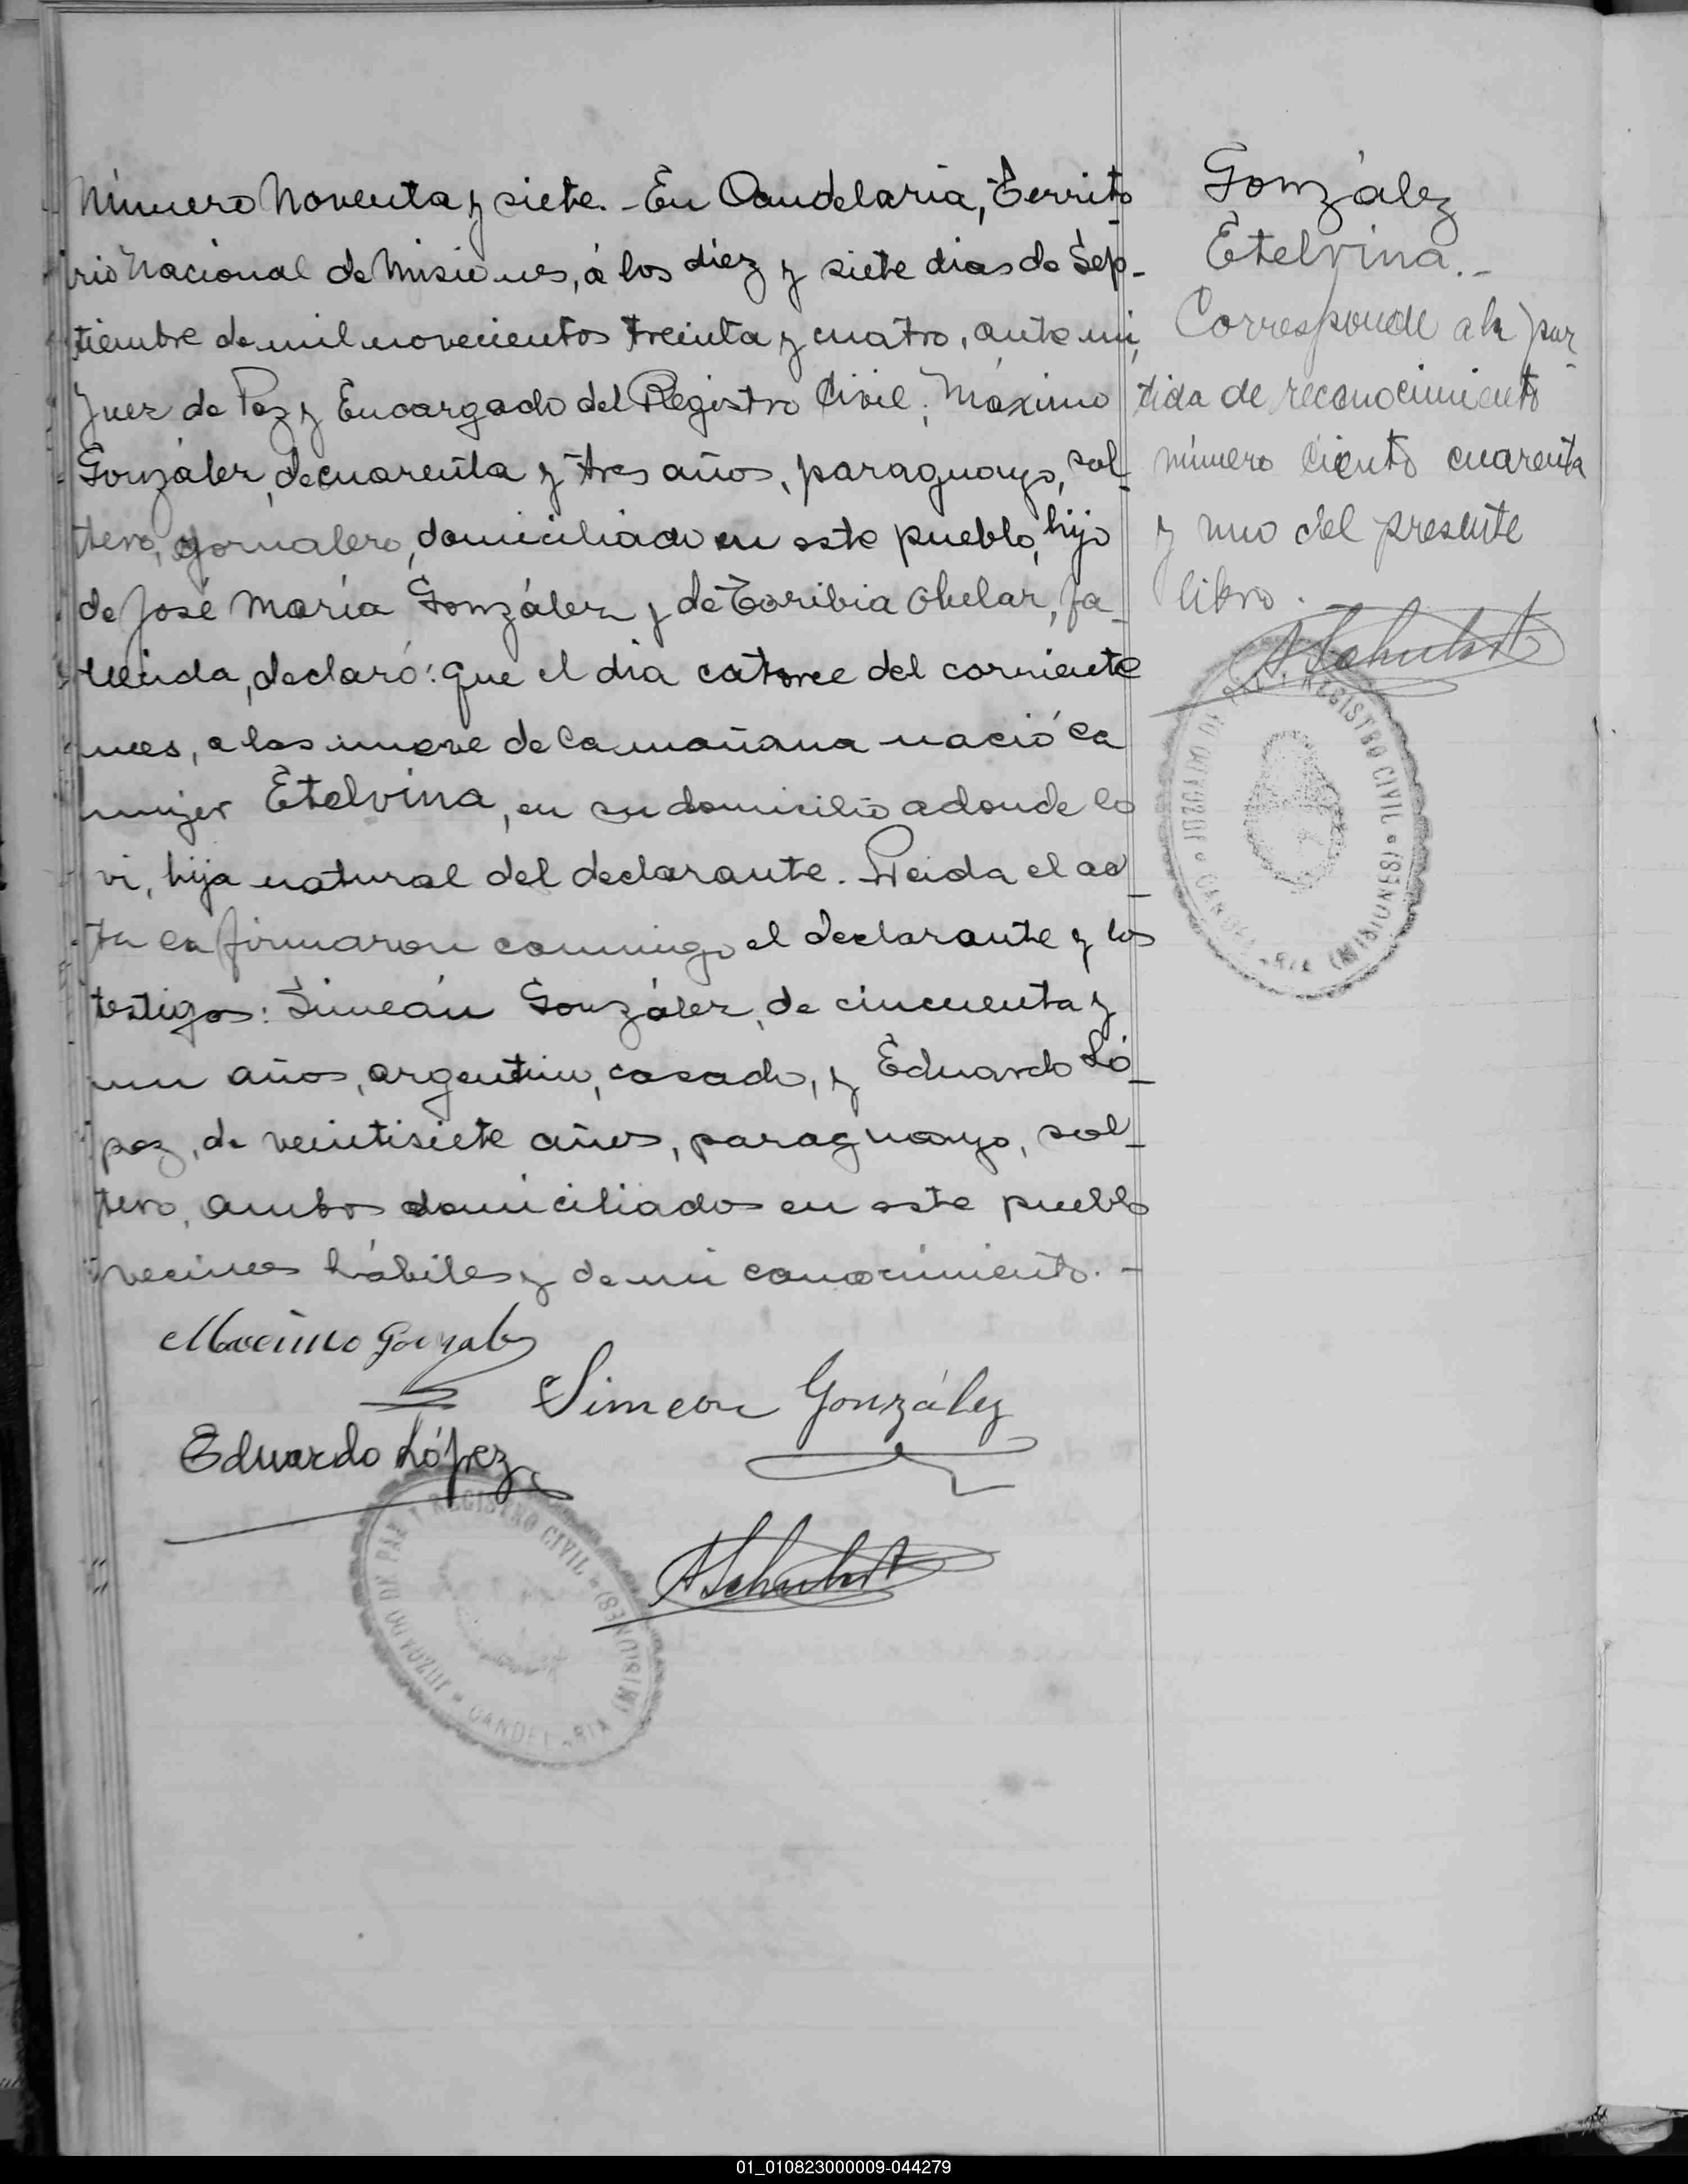 Número Noventa y siete. - En Candelaria, Territo
rio Nacional de Misiones, á los diez y siete dias de Sep-
tiembre de mil novecientos treinta y cuatro, ante mi,
Juez de Paz y Encargado del Registro Civil; Máximo
González, de cuarenta y tres años, paraguayo, sol-
tero, jornalero, domiciliado en este pueblo, hijo
de José María González y de Toribia Ohelar, fa-
llecida, declaró: que el dia catorce del corriente
mes, a las nueve de la mañana nació la
mujer Etelvina, en su domicilio adonde la
vi, hija natural del declarante. Leida el ac-
ta la firmaron conmigo el declarante y los
testigos: Simeón González, de cincuenta y
un años, argentino, casado, y Eduardo Ló-
pez, de veintisiete años, paraguayo, sol-
tero, ambos domiciliados en este pueblo
vecinos hábiles y de mi conocimiento. -
Macimo Gonzalez
Simeon González
Eduardo López
JUZGADO DE PAZ Y REGISTRO CIVIL
CANDELARIA (MISIONES)
González
Etelvina. -
Corresponde a la par-
tida de reconocimiento
número ciento cuarenta
y uno del presente
libro.
JUZGADO DE REGISTRO CIVIL
CANDELARIA (MISIONES)
01_010823000009-044279